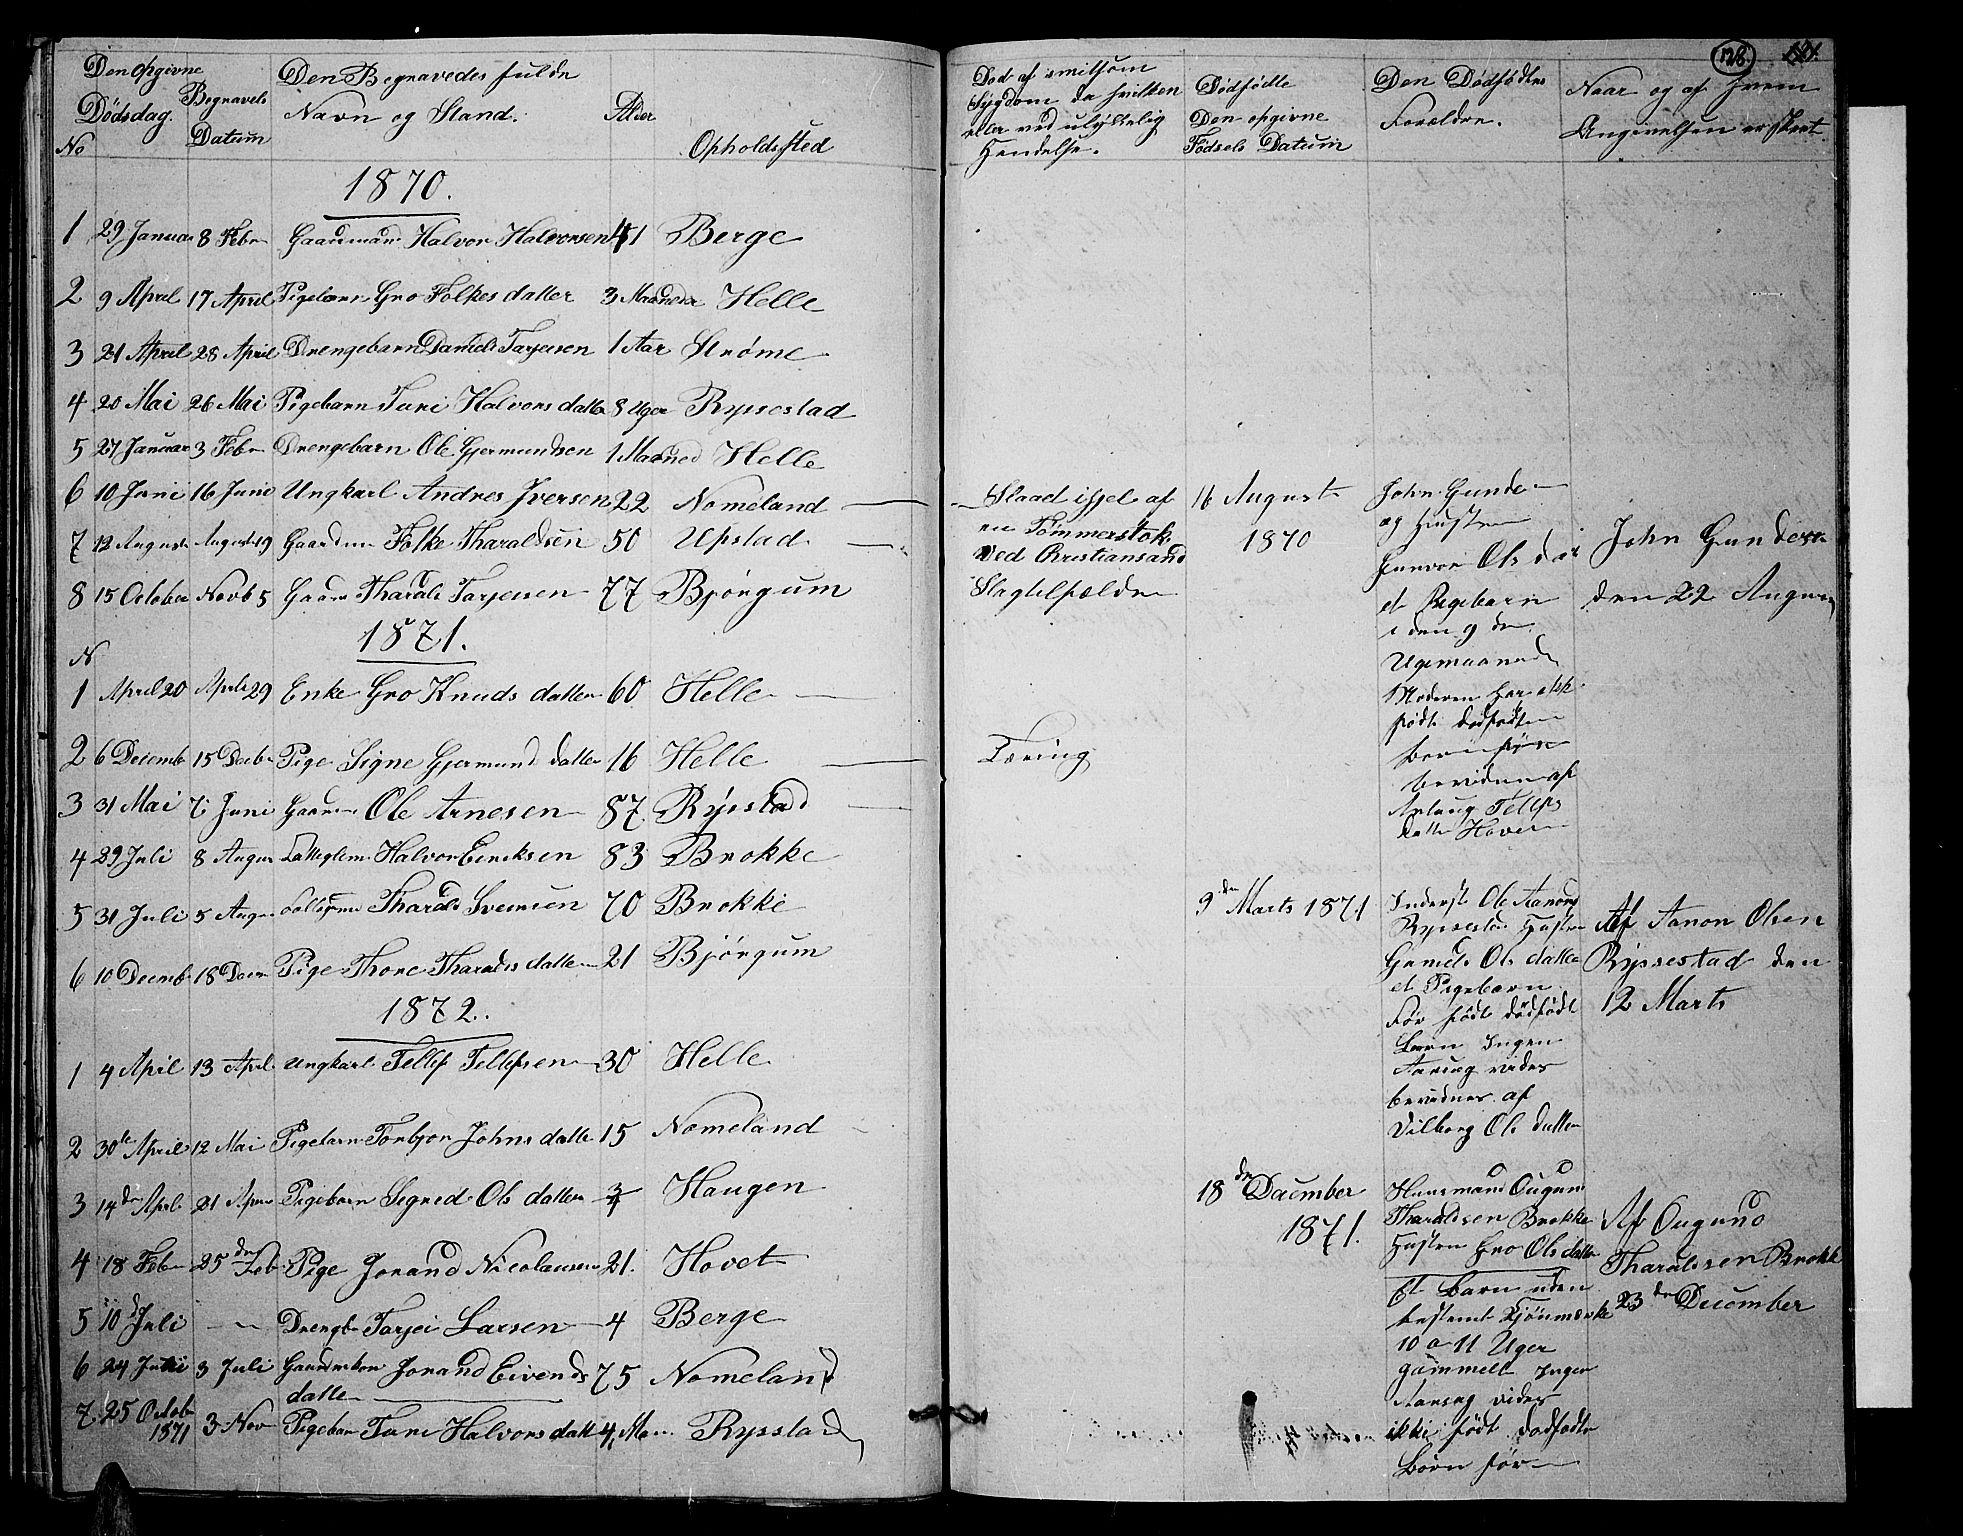 Den opgivne
Dödsdag.
No
Begravels
Datum
Den Begravedes fulde
Navn og Stand.
Alder
Opholdssted
1870.
1 29 Januar 8 Febr Gaardmand Halvor Halvorsen 41 Berge
2 9 April 17 April Pigebarn Gro Folkesdatter 3 Maaneder Helle
3 21 April 28 April Drengebarn Daniel Tarjeisen 1 Aar Strøme
4 20 Mai 26 Mai Pigebarn Turi Halvorsdatter 8 Uger Ryssestad
5 27 Januar 3 Febr Drengebarn Ole Gjermundsen 1 Maaned Helle
6 10 Juni 16 Juni Ungkarl Andres Iversen 22 Nomeland
7 12 August August 19 Gaardm Folke Tharaldsen 50 Upstad
8 15 October Novb 5 Gaardm Tharald Tarjeisen 77 Bjôrgum
1871.
N
1 April 20 April 29 Enke Gro Knudsdatter 60 Helle
2 6 Decemb 15 Decbr Pige Signe Gjermunddatter 16 Helle
3 31 Mai 7 Juni Gaardm Ole Arnesen 87 Rysstad
4 29 Juli 8 Augus Halvor Eericksen 83 Brokke
5 31 Juli 5 Augus Tharald Svensen 70 Brokke
6 10 Decemb 18 Decm Pige Thone Tharaldsdatter 21 Bjôrgum
1872.
1 4 April 13 April Ungkarl Tellef Tellefsen 30 Helle
2 30te April 12 Mai Pigebarn Torbjor Johnsdatter 15 Nomeland
3 14de April 21 April Pigebarn Segned Olsdatter 3/4 Haugen
4 18 Febr 25de Febr Pige Jorand Nicolausen 21. Hovet
5 10d Juli — Drengb Tarjei Larsen 4 Berge
6 24 Juni 3 Juli Gaardmkon Jorand Eivends
datter 75 Nomeland
7 25 Octob
1871 3 Nov Pigebar Turi Halvorsdatt 4 Ma Rysstad
128. 121.
Død af smitsom
Sygdom da hvilken
eller ved ulykkelig
Hendelse.
Dødfødte
Den opgivne
Fødsels Datum
Den Dødfødtes
Forældre.
Naar og af hvem
Angivelsen er skeet
Slaad ihjel af
en Tømmerstok
ved Christiansand
Slagtilfælde
Tæring
16 August
1870
John Gunders
og Hustru
Gunvor Olsdar
et Pigebarn
i den 9 de
Ugemaaned
Moderen har ikke
født dødfødte
børn før
bevidnes af
Aslaug Tellefs
datter Hover
John Gunders
den 22 August
9den Marts 1871
Inderst Ole Aanons
Ryssestad Hustru
Gunild Olsdatter
et Pigebarn
Før født dödfødt
Børn Ingen
Aarsag vides
bevidnes af
Vilborg Olsdatter
Af Aanon Olsen
Ryssestad den
12 Marts
18de December
1871.
Huusmand Ougund
Tharaldsen Brokke
Hustru Gro Olsdatter
Et Barn uden
bestemt Kjônmærke
10 a 11 Uger
gammelt Ingen
Aarsag vides
ikke født dødfødte
Børn før
Af Ougund
Tharaldsen Brokk
23de December